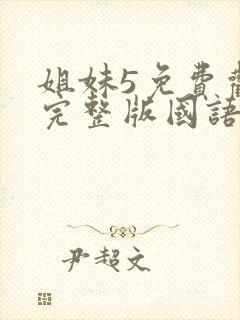 姐妹5免費
完整版國語
尹超文